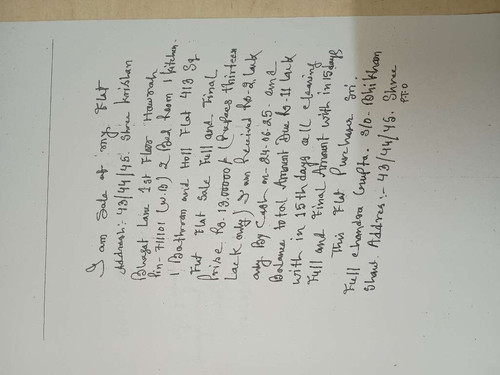 I am Sale of my Flat
Address:- 43/44/45. Shree Krishan
Bhagat Lane 1st Floor Howrah
Pin- 711101 (W.B) 2 Bed Room 1 kitchen.
1 Bathroom and Holl Flat 413 Sq
Fut Flat Sale Full and Final
Prise Rs. 13,00000/- (Rupees thirteen
Lack only) I am Received Rs-2 Lack
only By Cash on- 24-06-25. and
Balance total Amount Due Rs-11 Lack
with in 15th days all clearing
Full and Final Amount with in 15 days
This Flat Purchaser Sri.
Full Chandra Gupta. S/O- Bhikham
Shaw. Addres:- 43/44/45. Shree